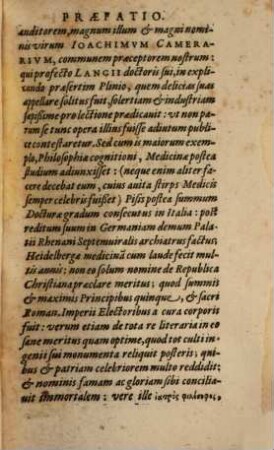 PRÆFATIO.
auditorem, magnum illum & magni nomi-
nis virum IOACHIMVM CAMERA-
RIVM, communem præceptorem nostrum:
qui profecto LANGII doctoris sui, in expli-
cando præsertim Plinio, quem delicias suas
appellare solitus fuit, solertiam & industriam
sæpissime pro lectione prædicauit: vt non pa-
rum se tunc opera illius fuisse adiutum publi-
ce contestaretur. Sed cum is maiorum exem-
plo, Philosophiæ cognitioni, Medicinæ postea
studium adiunxisset: (neque enim aliter fa-
cere decebat eum, cuius auita stirps Medicis
semper celebris fuisset) Pisis postea summum
Doctoræ gradum consecutus in Italia: post
reditum suum in Germaniam demum Pala-
tij Rhenani Septemuiralis archiatrus factus,
Heidelbergæ medicinã cum laude fecit mul-
tis annis: non eo solum nomine de Republica
Christiana præclare meritus; quod summis
& maximis Principibus quinque, & sacri
Roman. Imperii Electoribus a cura corporis
fuit: verum etiam de tota re literaria in eo
sane meritus quam optime, quod tot culti in-
genii sui monumenta reliquit posteris; qui-
bus & patriam celebriorem multo reddidit;
& nominis famam ac gloriam sibi concilia-
uit immortalem: vere ille ἰατρὸς φιλόσοφος,